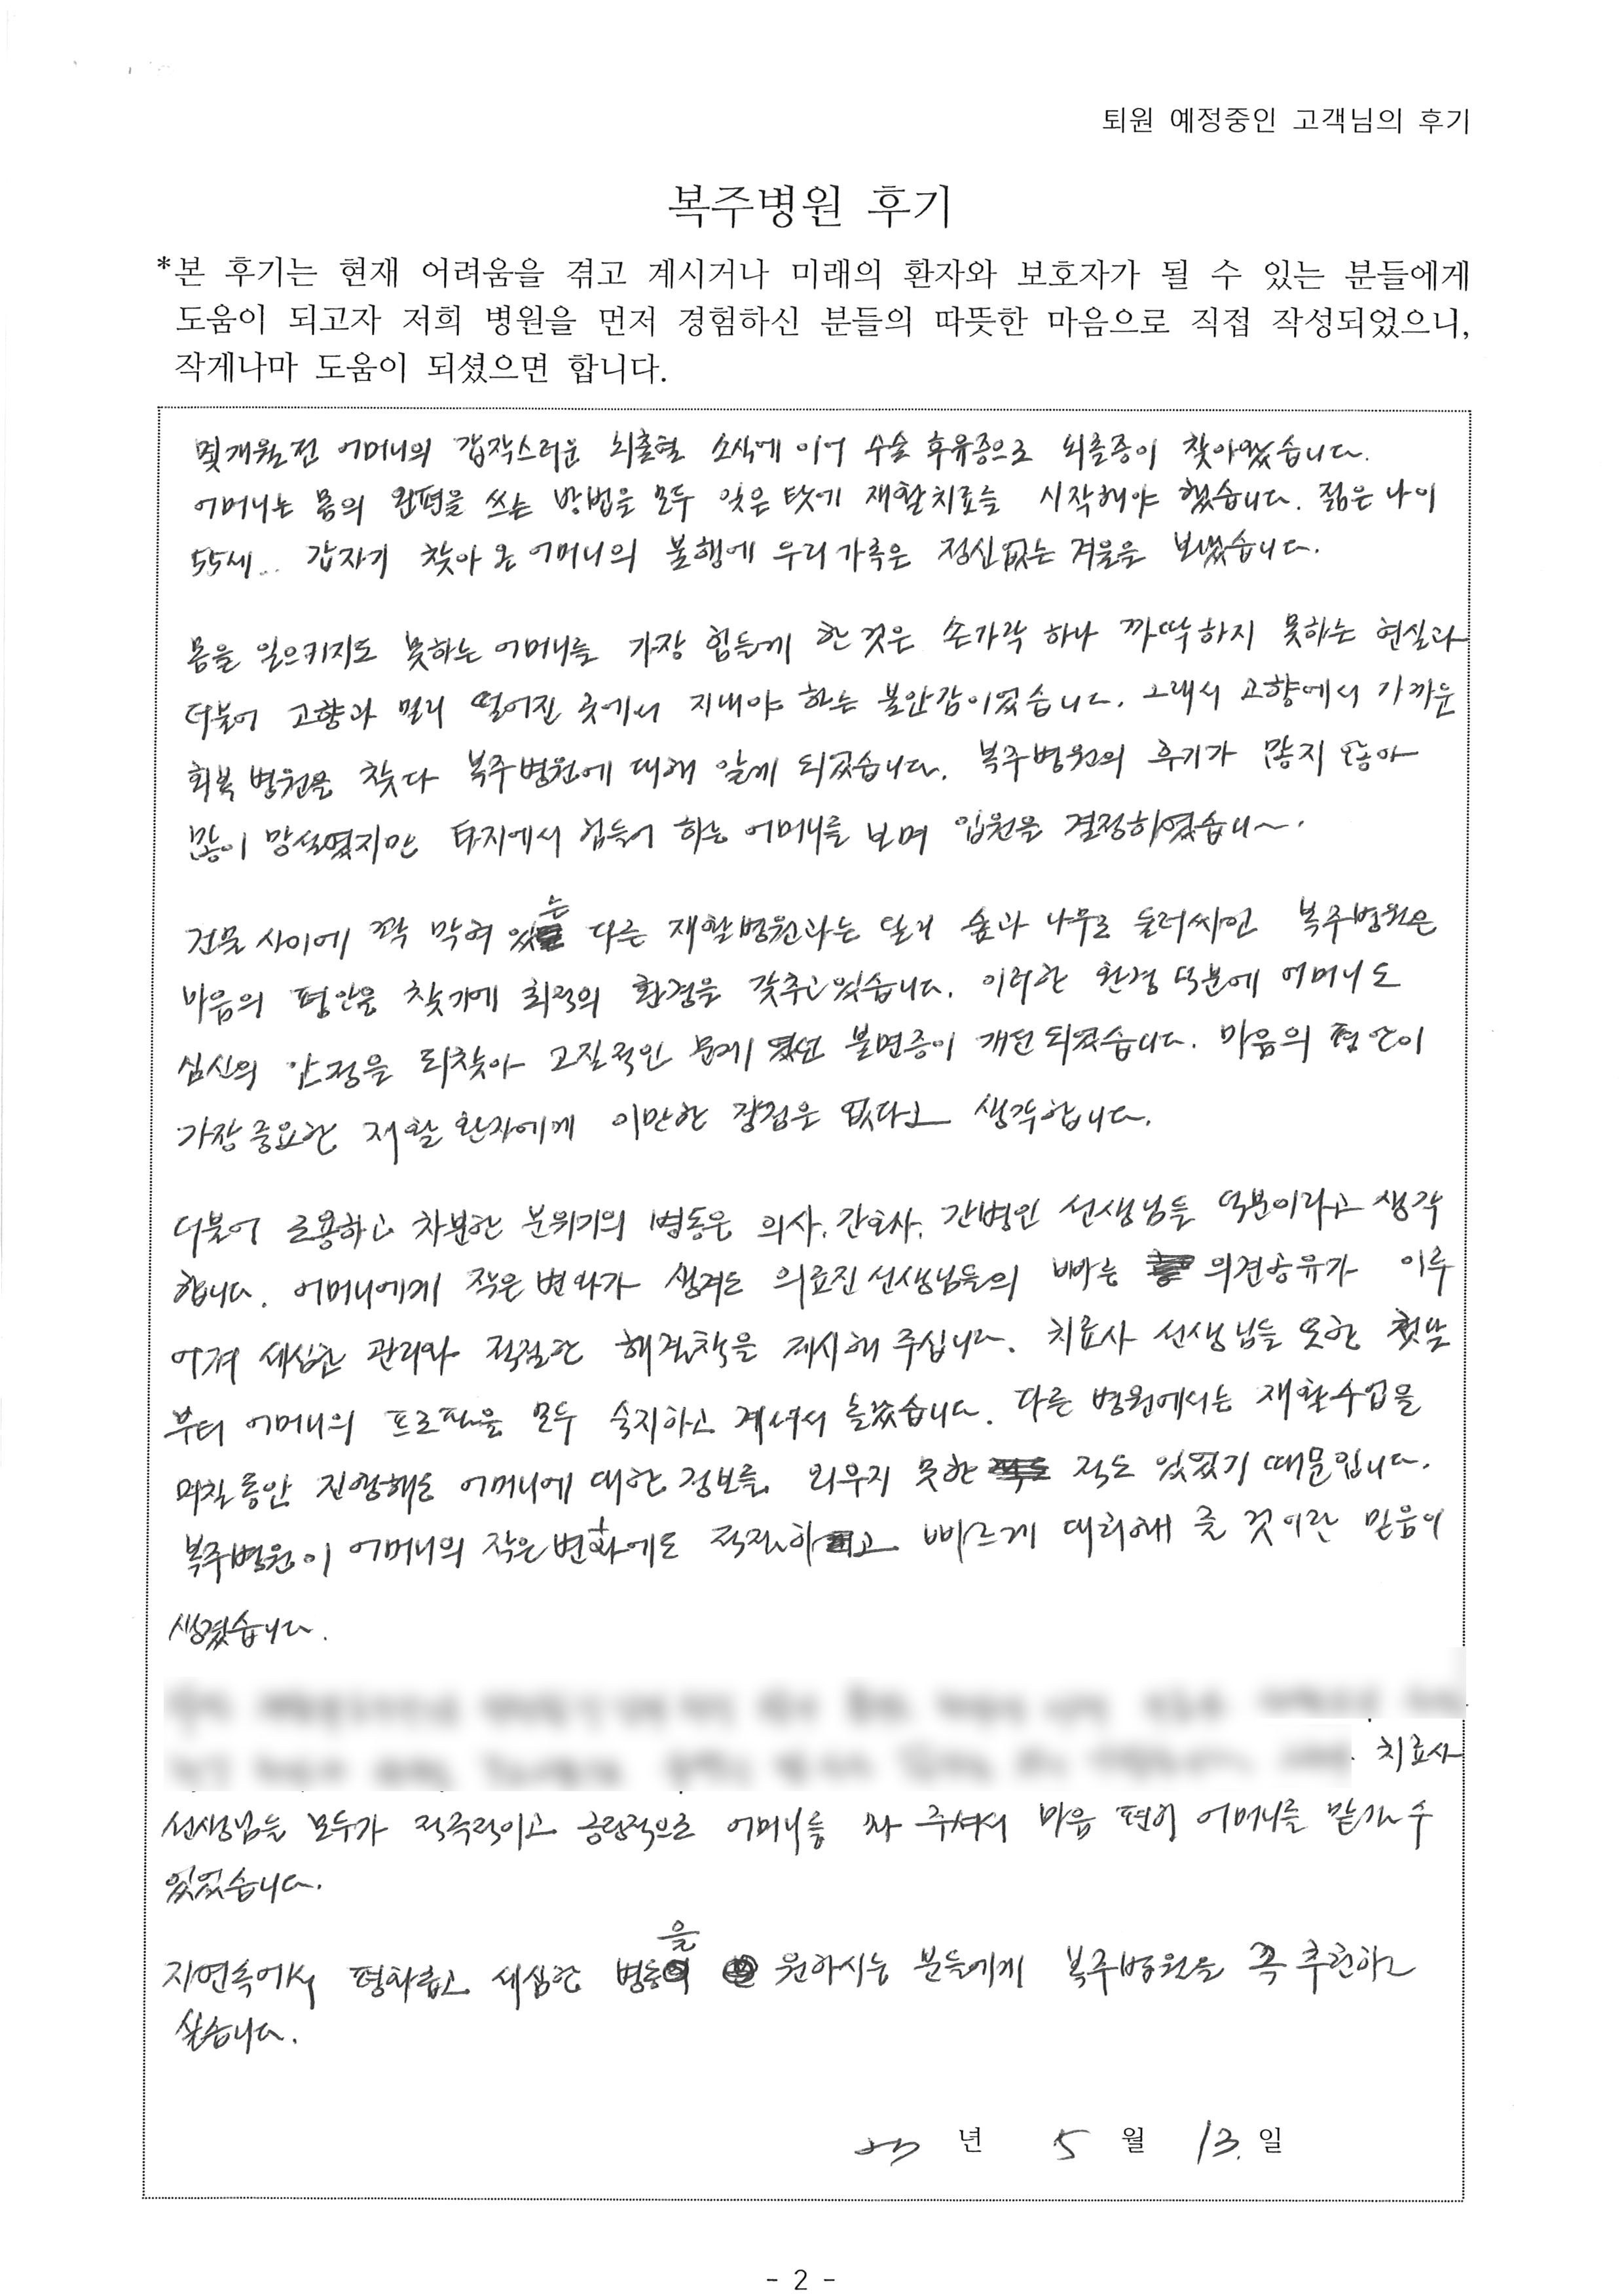 퇴원 예정중인 고객님의 후기
복주병원 후기
*본 후기는 현재 어려움을 겪고 계시거나 미래의 환자와 보호자가 될 수 있는 분들에게
도움이 되고자 저희 병원을 먼저 경험하신 분들의 따뜻한 마음으로 직접 작성되었으니,
작게나마 도움이 되셨으면 합니다.
몇개월전 어머니의 갑작스러운 뇌출혈 소식에 이어 수술 후유증으로 뇌졸중이 찾아왔습니다.
어머니는 몸의 왼편을 쓰는 방법을 모두 잊은 탓에 재활치료를 시작해야 했습니다. 젊은 나이
55세... 갑자기 찾아온 어머니의 불행에 우리가족은 정신없는 겨울을 보냈습니다.
몸을 일으키지도 못하는 어머니를 가장 힘들게 한 것은 손가락 하나 까딱하지 못하는 현실과
더불어 고향과 멀리 떨어진 곳에서 지내야 하는 불안감이었습니다. 그래서 고향에서 가까운
회복병원을 찾다 복주병원에 대해 알게 되었습니다. 복주병원의 후기가 많지 않아
많이 망설였지만 타지에서 힘들어 하는 어머니를 보며 입원을 결정하였습니다.
건물 사이에 꽉 막혀 있는 다른 재활병원과는 달리 숲과 나무로 둘러싸인 복주병원은
마음의 평안을 찾기에 최적의 환경을 갖추고 있습니다. 이러한 환경 덕분에 어머니도
심신의 안정을 되찾아 고질적인 문제였던 불면증이 개선되었습니다. 마음의 평안이
가장 중요한 재활환자에게 이만한 장점은 없다고 생각합니다.
더불어 조용하고 차분한 분위기의 병동은 의사, 간호사, 간병인 선생님들 덕분이라고 생각
합니다. 어머니에게 작은 변화가 생겨도 의료진 선생님들의 빠른 의견공유가 이루
어져 세심한 관리와 적절한 해결책을 제시해 주십니다. 치료사 선생님들 또한 첫날
부터 어머니의 프로필을 모두 숙지하고 계셔서 놀랐습니다. 다른 병원에서는 재활수업을
며칠동안 진행해도 어머니에 대한 정보를 외우지 못한 적도 있었기 때문입니다.
복주병원이 어머니의 작은변화에도 적절하고 빠르게 대처해 줄 것이란 믿음이
생겼습니다.
치료사
선생님들 모두가 적극적이고 긍정적으로 어머니를 봐 주셔서 마음 편히 어머니를 맡길 수
있었습니다.
자연속에서 평화롭고 세심한 병동을 원하시는 분들에게 복주병원을 꼭 추천하고
싶습니다.
23 년 5 월 13. 일
- 2 -